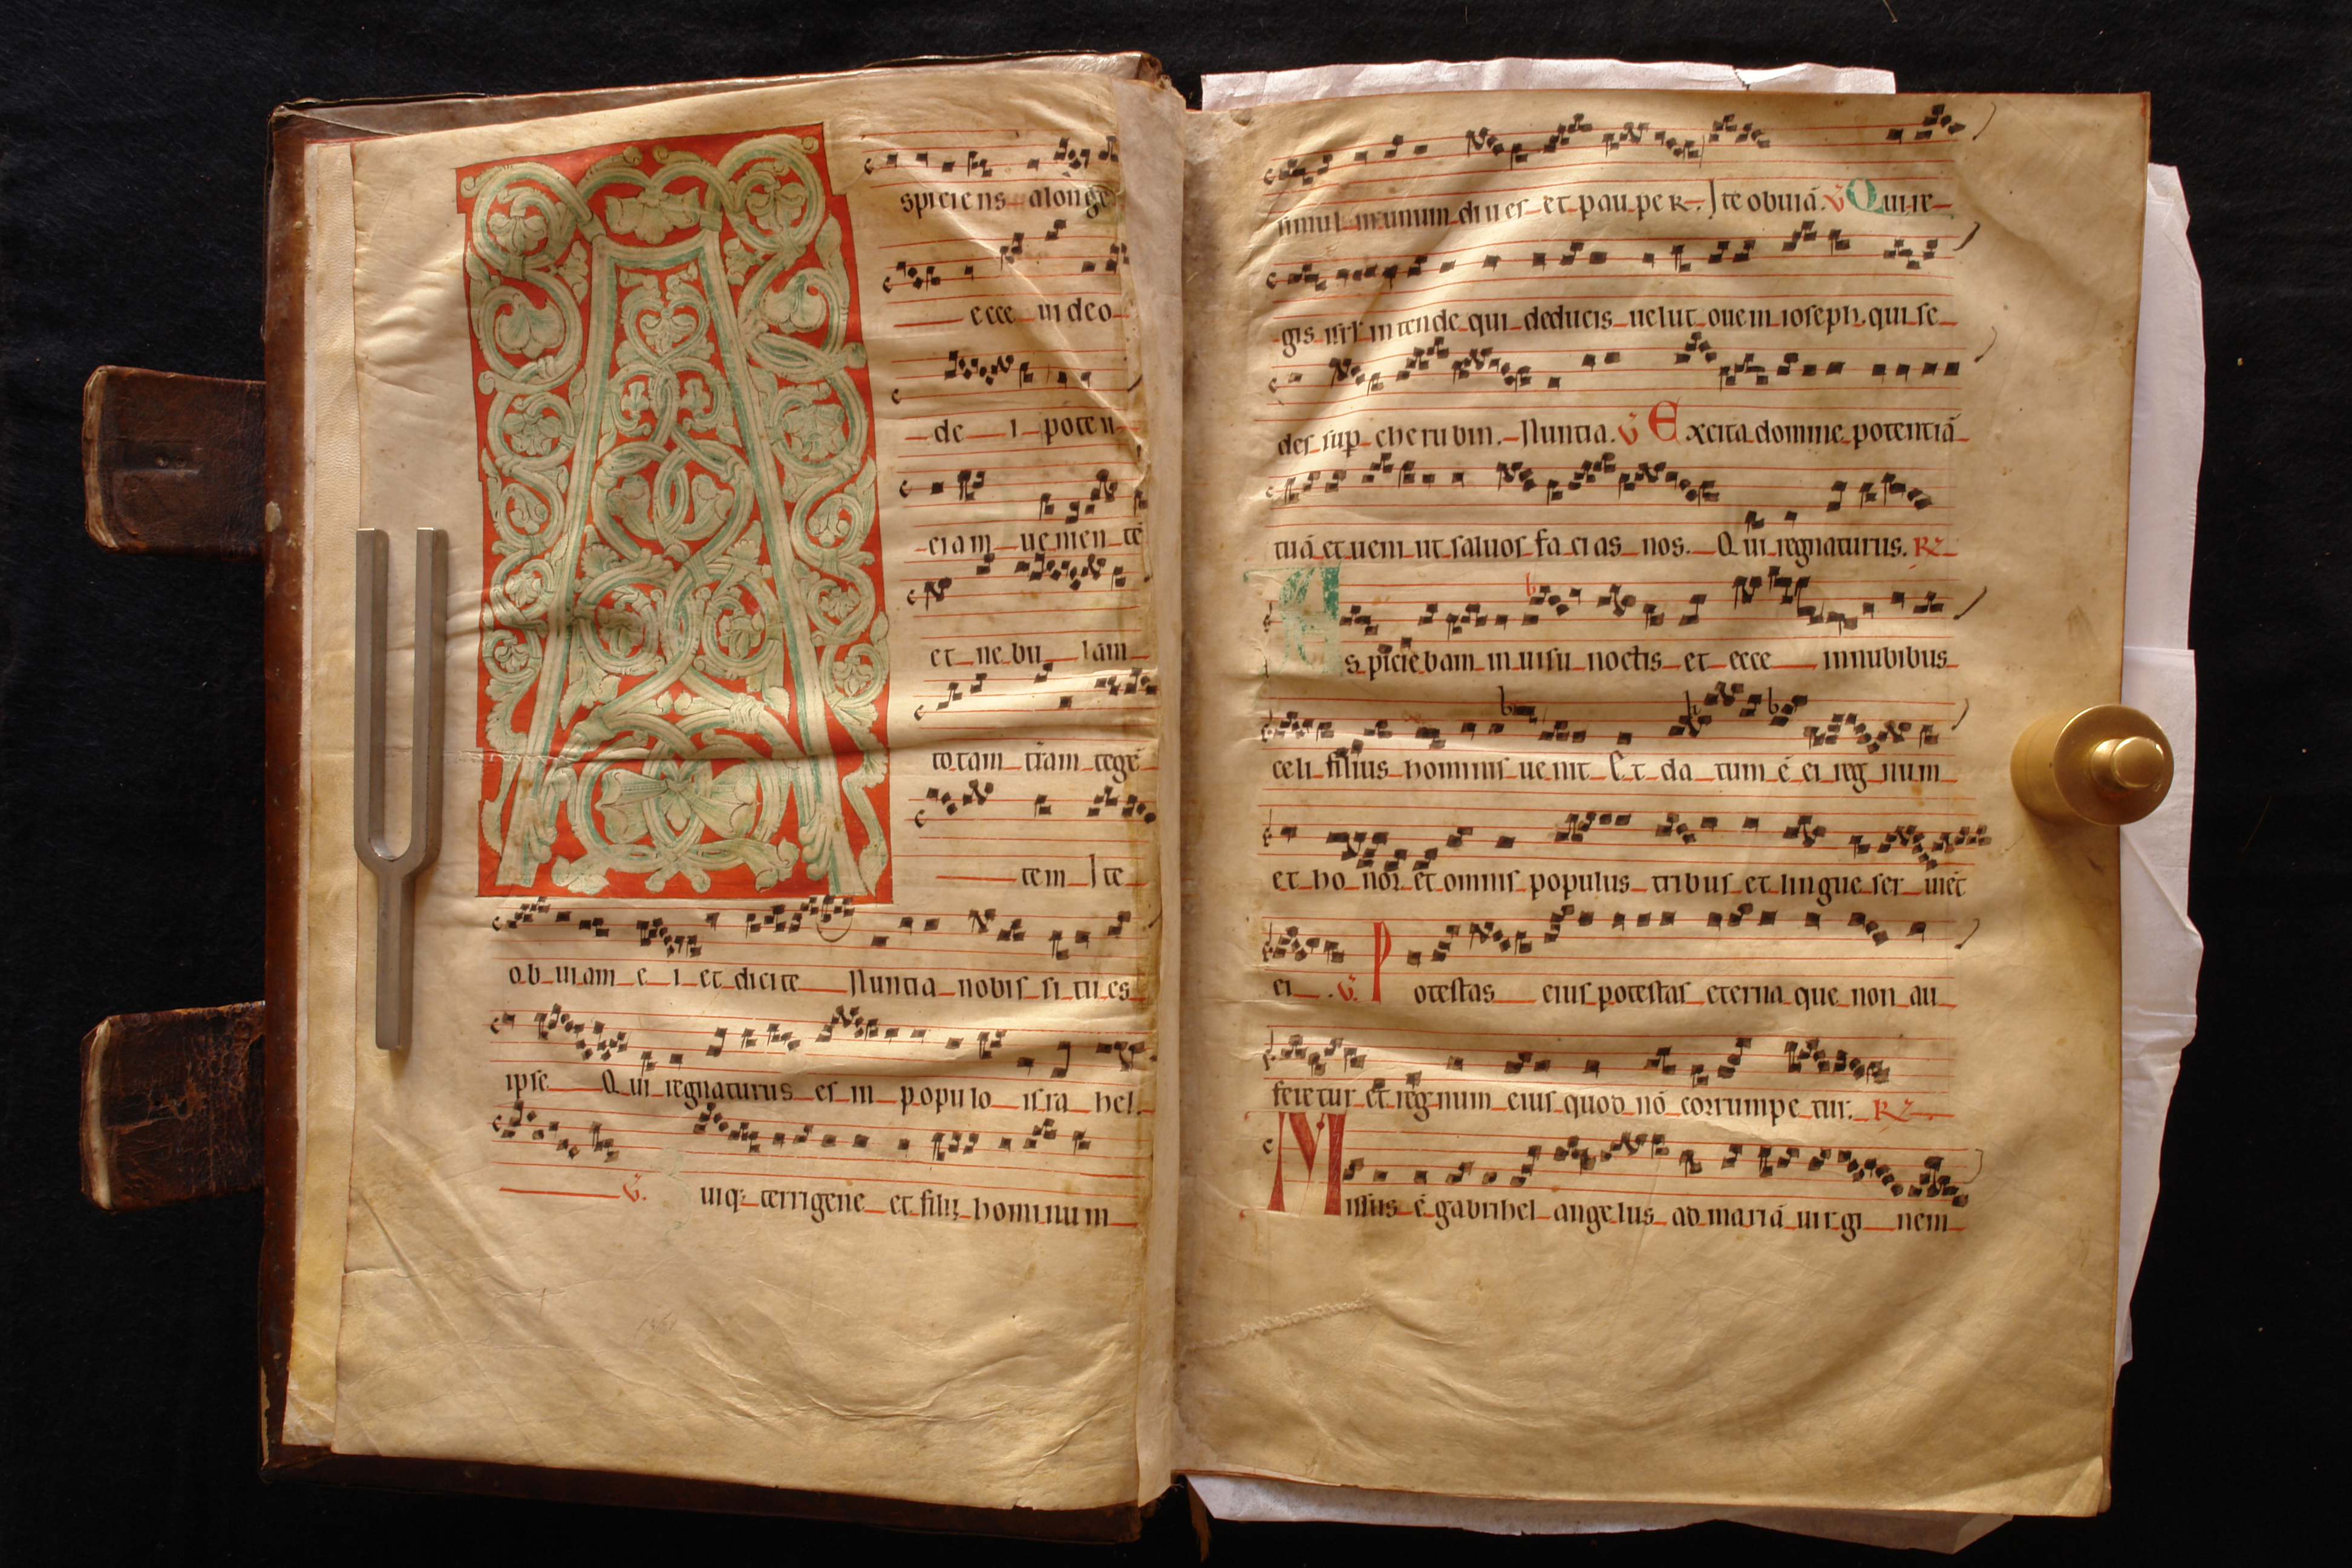 spiciens alonge
ecce uideo
de i poten
ciam uenien tē
et ne bu lam
totam t̄ram tegē
tem Ite
ob uiam e i et dicite Nuntia nobis si tu es
ipse Qui regnaturus es in populo isra hel.
℣. uiq; terrigene et filii hominum
simul in unum diues et pauper. Ite obuiā. ℣ Qui re
gis isrł intende qui deducis uelut ouem ioseph. qui se
des sup cherubin. Nuntia. ℣ Excita domine potentiā
tuā et ueni ut saluos facias nos. Qui regnaturus. R
Aspiciebam in uisu noctis et ecce in nubibus
celi filius hominis uenit Et da tum ē ei reg num
et ho nor et omnis populus tribus et lingue ser uiēt
ei. ℣. Potestas eius potestas eterna que non au
feretur et reg num eius quod nō corrumpe tur. R
Missus ē gabrihel angelus ad mariā uirgi nem